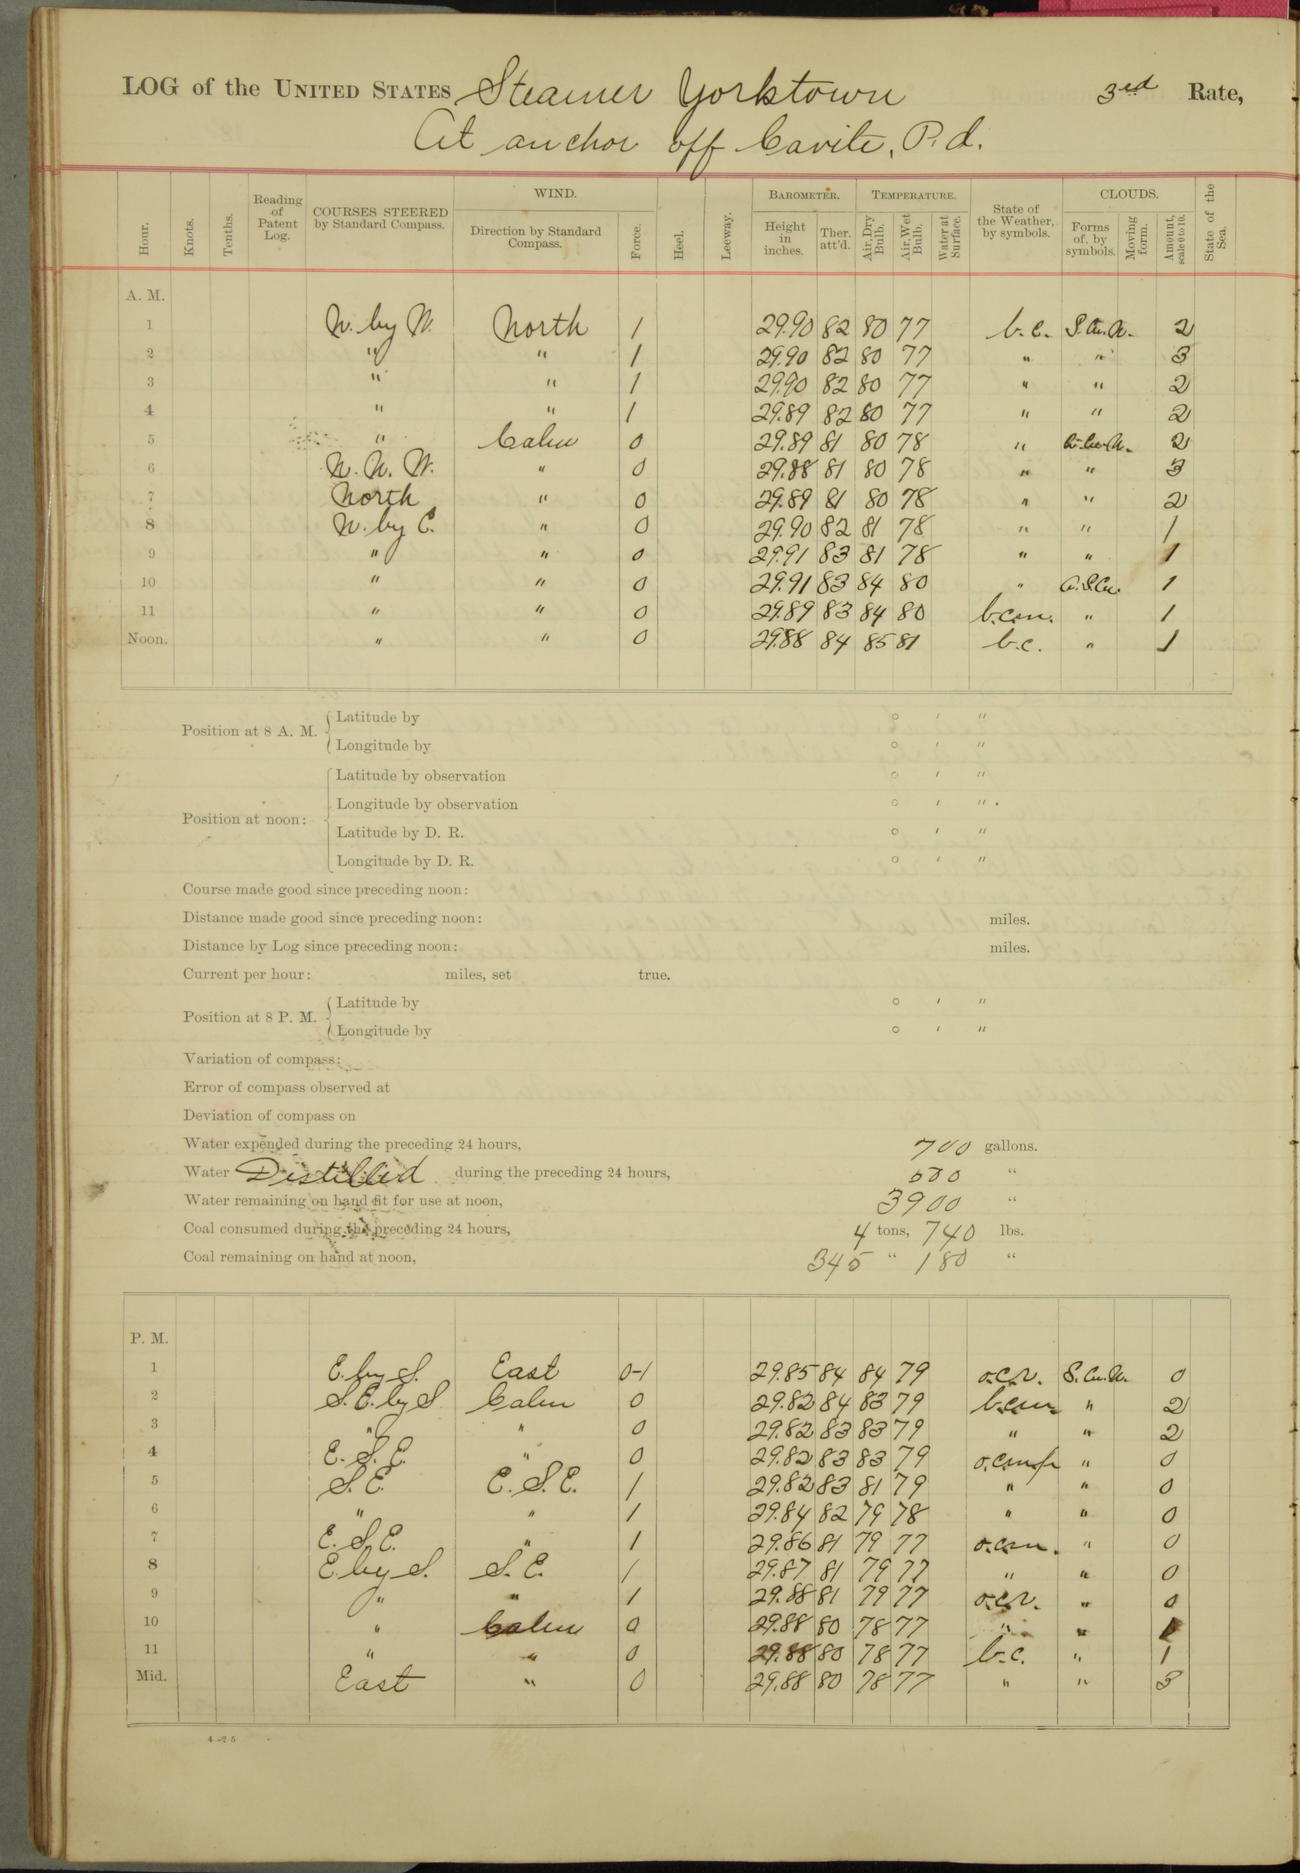 LOG of the UNITED STATES Steamer Yorktown 3rd Rate,
At anchor off Cavite, P.I.
Hour. Knots. Tenths. Reading of Patent Log. COURSES STEERED by Standard Compass. WIND. Direction by Standard Compass. Force. Heel. Leeway. BAROMETER. Height in inches. Ther. att'd. TEMPERATURE. Air, Dry Bulb. Air, Wet Bulb. Water at Surface. State of the Weather, by symbols. CLOUDS. Forms of, by symbols. Moving form. Amount, scale 0 to 10. State of the Sea.
A. M.
1 N. by W. North 1 29.90 82 80 77 b.c. S.Cu.N. 2
2 " " 1 29.90 82 80 77 " " 3
3 " " 1 29.90 82 80 77 " " 2
4 " " 1 29.89 82 80 77 " " 2
5 " Calm 0 29.89 81 80 78 " 2
6 N. N. W. " 0 29.88 81 80 78 " " 3
7 North " 0 29.89 81 80 78 " " 2
8 N. by E. " 0 29.90 82 81 78 " " 1
9 " " 0 29.91 83 81 78 " " 1
10 " " 0 29.91 83 84 80 " 1
11 " " 0 29.89 83 84 80 b.c.m. " 1
Noon. " " 0 29.88 84 85 81 b.c. " 1
Position at 8 A. M. Latitude by ° ′ ″
Longitude by ° ′ ″
Position at noon: Latitude by observation ° ′ ″
Longitude by observation ° ′ ″
Latitude by D. R. ° ′ ″
Longitude by D. R. ° ′ ″
Course made good since preceding noon:
Distance made good since preceding noon: miles.
Distance by Log since preceding noon: miles.
Current per hour: miles, set true.
Position at 8 P. M. Latitude by ° ′ ″
Longitude by ° ′ ″
Variation of compass:
Error of compass observed at
Deviation of compass on
Water expended during the preceding 24 hours, 700 gallons.
Water Distilled during the preceding 24 hours, 500 "
Water remaining on hand fit for use at noon, 3900 "
Coal consumed during the preceding 24 hours, 4 tons, 740 lbs.
Coal remaining on hand at noon, 345 " 180 "
P. M.
1 E. by S. East 0-1 29.85 84 84 79 o.c.r. S.Cu.N. 0
2 S.E. by S. Calm 0 29.82 84 83 79 b.c.m. " 2
3 " " 0 29.82 83 83 79 " " 2
4 E. S. E. " 0 29.82 83 83 79 " 0
5 S. E. E. S. E. 1 29.82 83 81 79 " " 0
6 " " 1 29.84 82 79 78 " " 0
7 E. S. E. " 1 29.86 81 79 77 o.c.m. " 0
8 E. by S. S. E. 1 29.87 81 79 77 " " 0
9 " " 1 29.88 81 79 77 o.c.r. " 0
10 " Calm 0 29.88 80 78 77 " " 1
11 " " 0 29.88 80 78 77 b.c. " 1
Mid. East " 0 29.88 80 78 77 " " 3
4—25